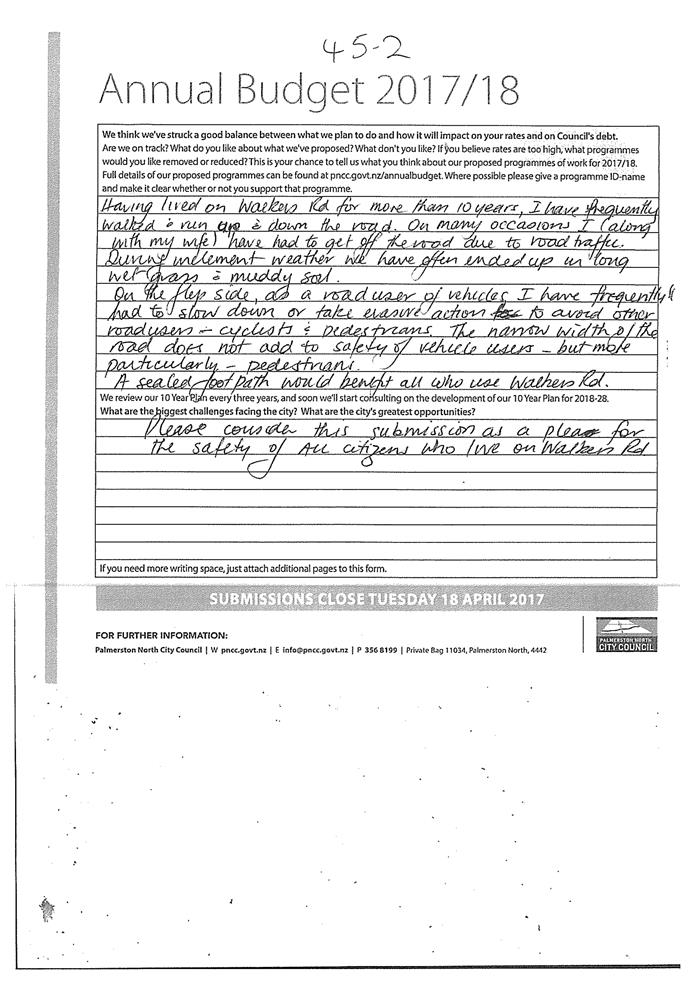 45-2
Annual Budget 2017/18
We think we've struck a good balance between what we plan to do and how it will impact on your rates and on Council's debt.
Are we on track? What do you like about what we've proposed? What don't you like? If you believe rates are too high, what programmes
would you like removed or reduced? This is your chance to tell us what you think about our proposed programmes of work for 2017/18.
Full details of our proposed programmes can be found at pncc.govt.nz/annualbudget. Where possible please give a programme ID-name
and make it clear whether or not you support that programme.
Having lived on Walkers Rd for more than 10 years, I have frequently
walked & run up & down the road. On many occasions I (along
with my wife) have had to get off the road due to road traffic.
During inclement weather we have often ended up in long
wet grass & muddy soil.
On the flip side, as a road user of vehicles I have frequently
had to slow down or take evasive action to avoid other
roadusers - cyclists & pedestrians. The narrow width of the
road does not add to safety of vehicle users - but more
particularly - pedestrians.
A sealed footpath would benefit all who use Walkers Rd.
We review our 10 Year Plan every three years, and soon we'll start consulting on the development of our 10 Year Plan for 2018-28.
What are the biggest challenges facing the city? What are the city's greatest opportunities?
Please consider this submission as a plea for
the safety of ALL citizens who live on Walkers Rd
If you need more writing space, just attach additional pages to this form.
SUBMISSIONS CLOSE TUESDAY 18 APRIL 2017
FOR FURTHER INFORMATION:
Palmerston North City Council | W pncc.govt.nz | E info@pncc.govt.nz | P 356 8199 | Private Bag 11034, Palmerston North, 4442
PALMERSTON NORTH
CITY COUNCIL